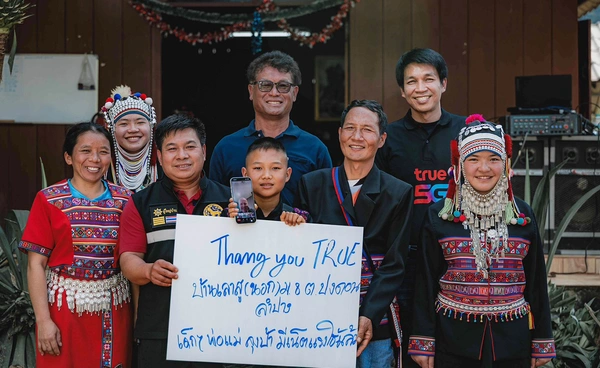 Thang you TRUE
บ้านเลาสู(นอก)ม 8 ต ปงดอน
ลำปาง
เด็กๆ พ่อแม่ ลุงป้า มีเน็ตแรงใช้แล้ว
true
5G